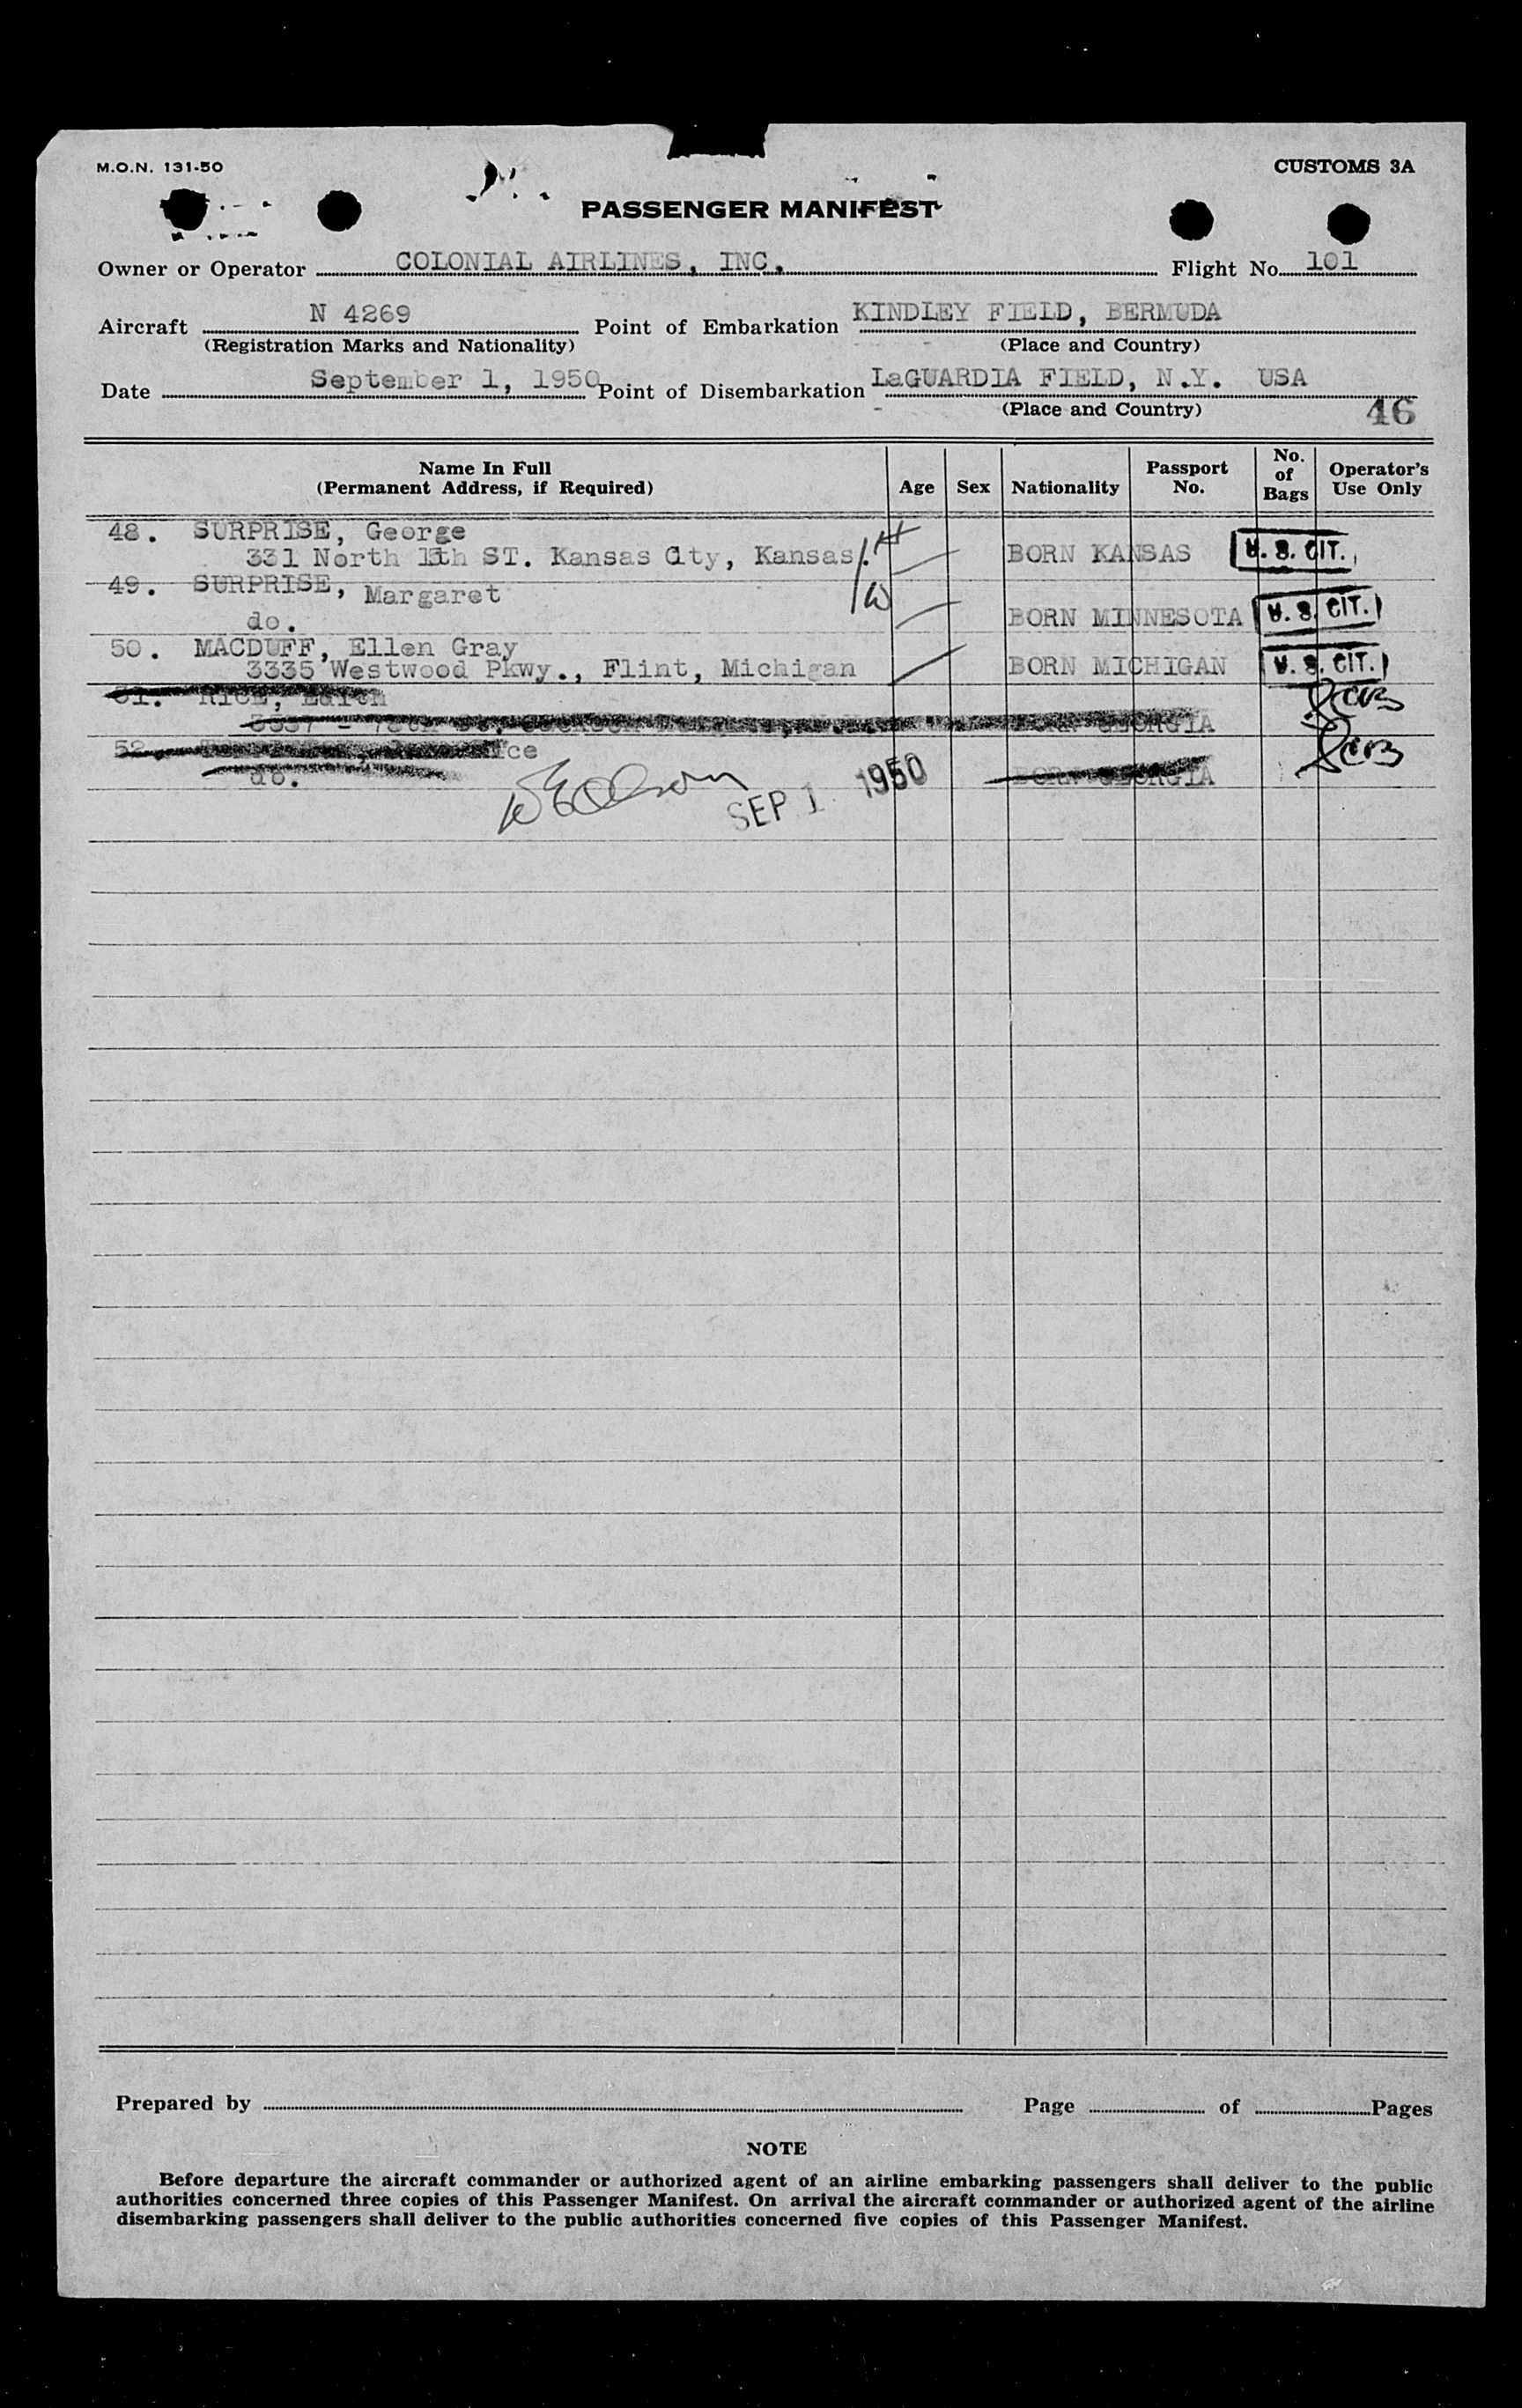 M.O.N. 131-50
CUSTOMS 3A
PASSENGER MANIFEST
Owner or Operator COLONIAL AIRLINES, INC. Flight No. 101
Aircraft N 4269 Point of Embarkation KINDLEY FIELD, BERMUDA
(Registration Marks and Nationality) (Place and Country)
Date September 1, 1950 Point of Disembarkation LaGUARDIA FIELD, N.Y. USA
(Place and Country)
46
Name In Full (Permanent Address, if Required) Age Sex Nationality Passport No. No. of Bags Operator's Use Only
48. SURPRISE, George H
331 North 11th ST. Kansas City, Kansas. BORN KANSAS U. S. CIT.
49. SURPRISE, Margaret W
do. BORN MINNESOTA U. S. CIT.
50. MACDUFF, Ellen Gray
3335 Westwood Pkwy., Flint, Michigan BORN MICHIGAN U. S. CIT.
51. RICE, Edith
3337 - GEORGIA
52.
do. BORN GEORGIA
SEP 1 1950
Prepared by Page of Pages
NOTE
Before departure the aircraft commander or authorized agent of an airline embarking passengers shall deliver to the public
authorities concerned three copies of this Passenger Manifest. On arrival the aircraft commander or authorized agent of the airline
disembarking passengers shall deliver to the public authorities concerned five copies of this Passenger Manifest.